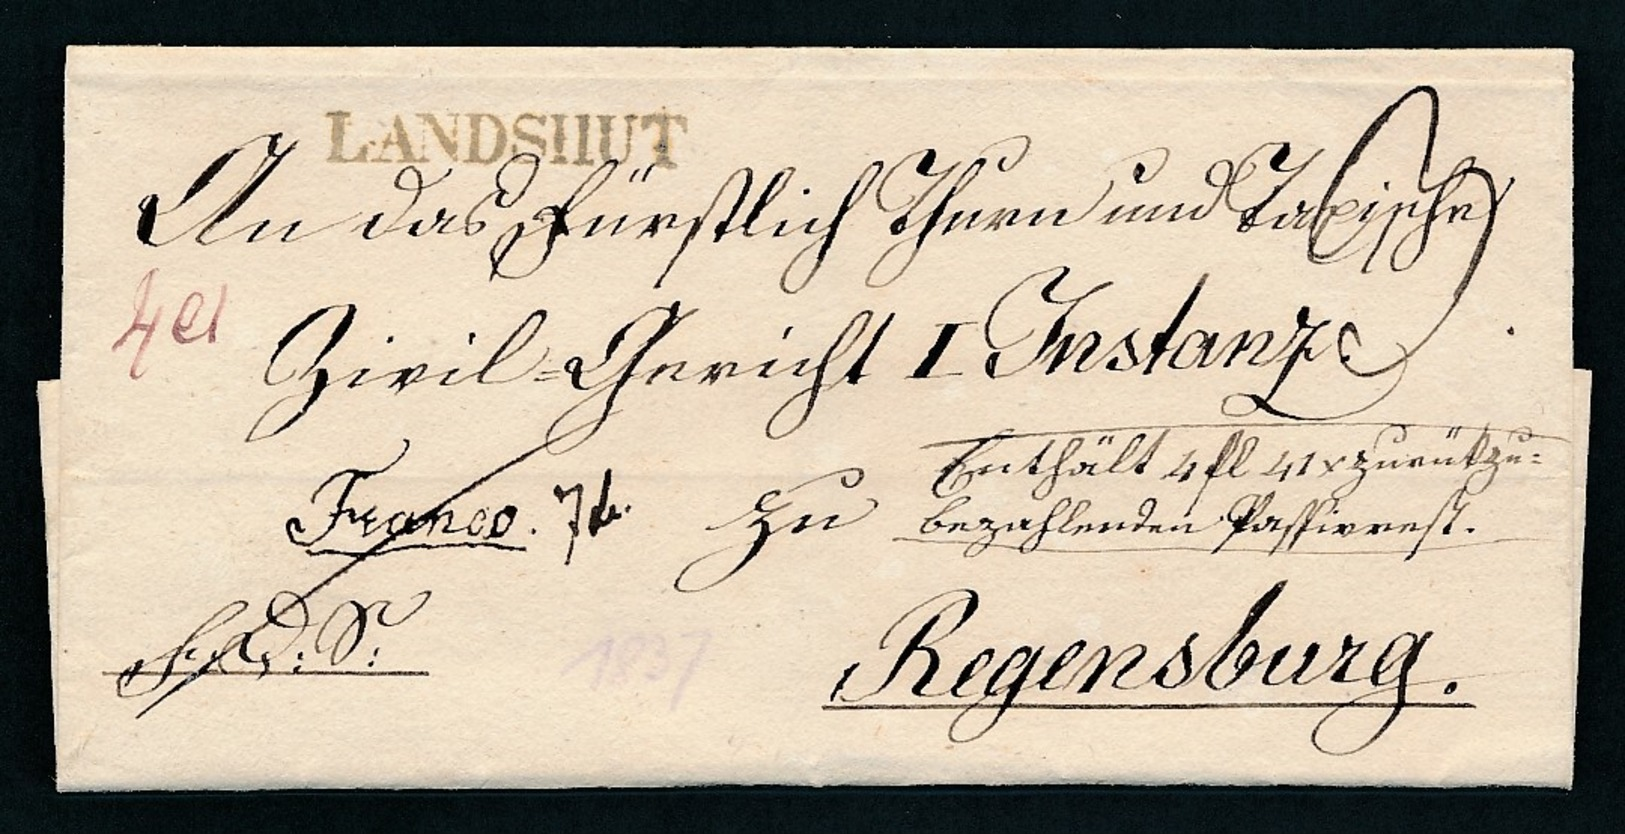 LANDSHUT
An das Fürstlich Thurn und Taxische
4 41
Zivil=Gericht I Instanz
Enthält 4 fl 41 x zurükzu-
bezahlenden Passivrest.
Franco. zu
1837
Regensburg.